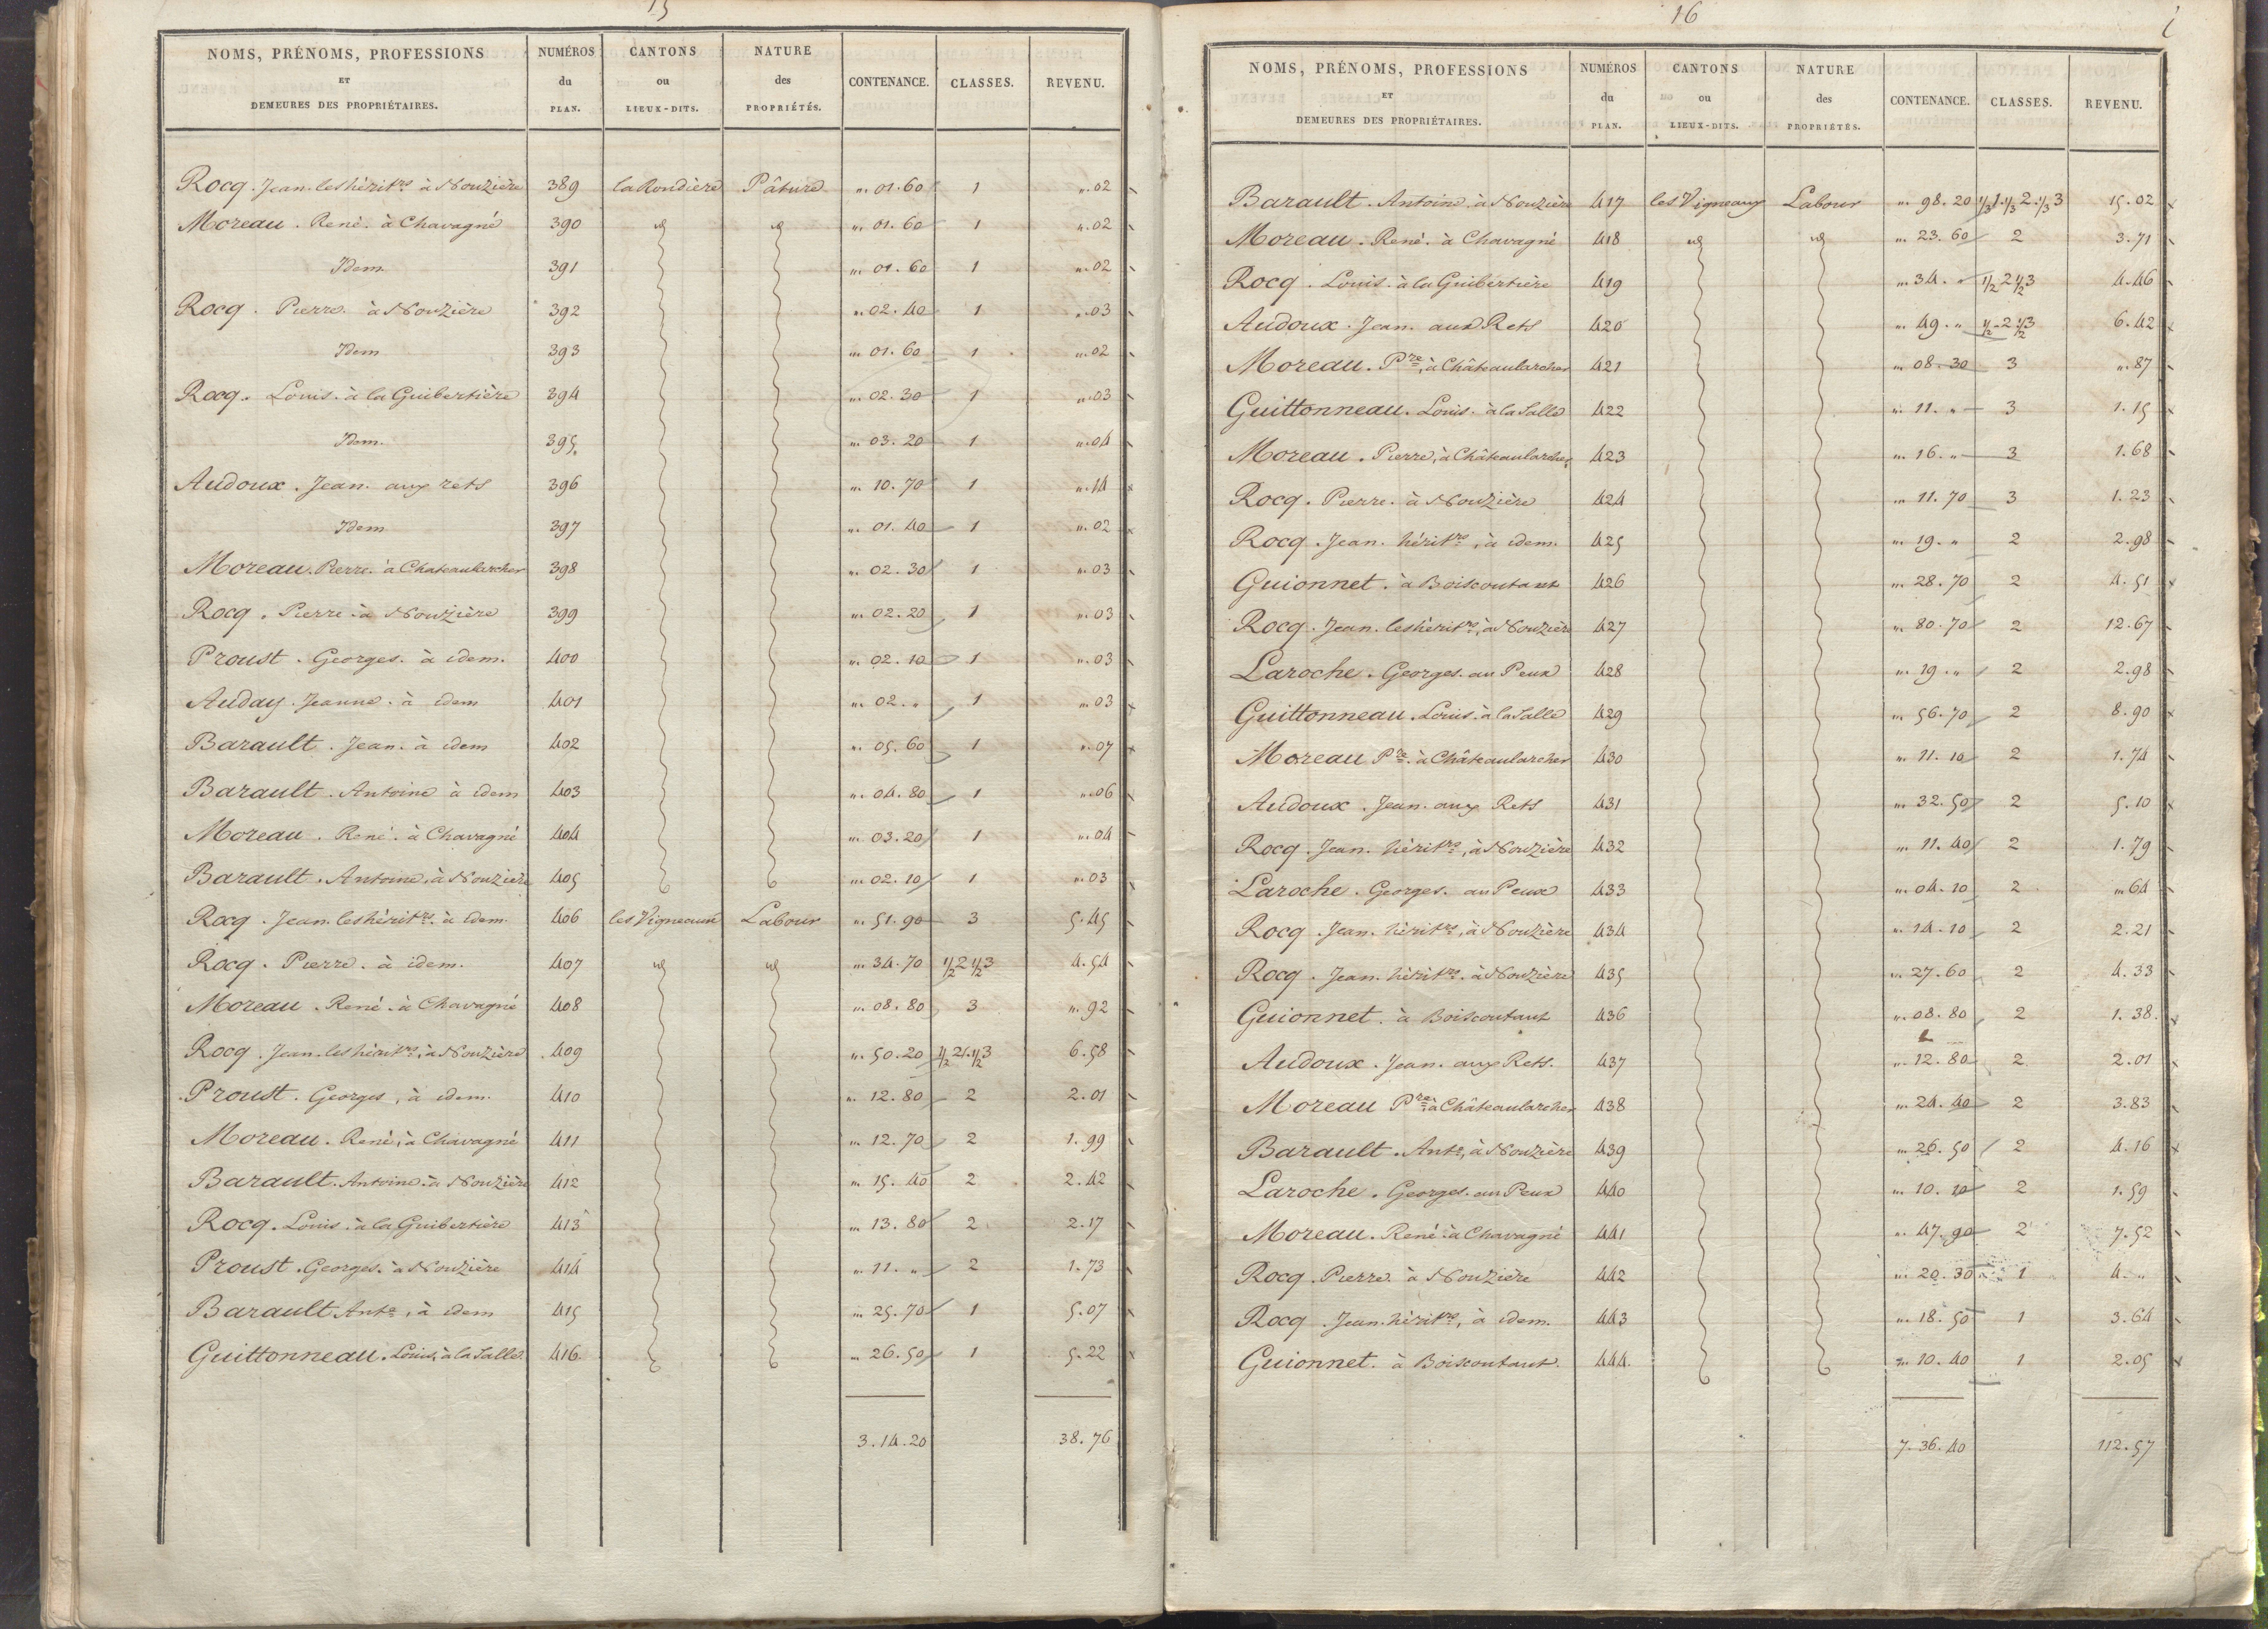 15
NOMS, PRÉNOMS, PROFESSIONS ET DEMEURES DES PROPRIÉTAIRES. NUMÉROS du PLAN. CANTONS ou LIEUX-DITS. NATURE des PROPRIÉTÉS. CONTENANCE. CLASSES. REVENU.
Rocq. Jean. les hérit.rs à Nouzière 389 la Rondière Pâture ". 01. 60 1 ". 02
Moreau. René. à Chavagné 390 id id ". 01. 60 1 ". 02
Idem 391 ". 01. 60 1 ". 02
Rocq. Pierre. à Nouzière 392 ". 02. 40 1 ". 03
Idem 393 ". 01. 60 1 ". 02
Rocq. Louis. à la Guibertière 394 ". 02. 30 1 ". 03
Idem. 395. ". 03. 20 1 ". 04
Audoux. Jean. aux rets 396 ". 10. 70 1 ". 14
Idem 397 ". 01. 40 1 ". 02
Moreau. Pierre. à Chateaularcher 398 ". 02. 30 1 ". 03
Rocq. Pierre. à Nouzière 399 ". 02. 20 1 ". 03
Proust. Georges. à idem. 400 ". 02. 10 1 ". 03
Auday. Jeanne. à idem 401 ". 02. " 1 ". 03
Barault. Jean. à idem 402 ". 05. 60 1 ". 07
Barault. Antoine à idem 403 ". 04. 80 1 ". 06
Moreau. René. à Chavagné 404 ". 03. 20 1 ". 04
Barault. Antoine, à Nouzière 405 ". 02. 10 1 ". 03
Rocq. Jean. les hérit.rs à idem. 406 les Vigneaux Labour ". 51. 90 3 5. 45
Rocq. Pierre. à idem. 407 id id ". 34. 70 1/2 2 1/2 3 4. 54
Moreau. René. à Chavagné 408 ". 08. 80 3 ". 92
Rocq. Jean. les hérit.rs, à Nouzière 409 ". 50. 20 1/2 2. 1/2 3 6. 58
Proust. Georges, à idem. 410 ". 12. 80 2 2. 01
Moreau. René, à Chavagné 411 ". 12. 70 2 1. 99
Barault. Antoine. à Nouzière 412 ". 15. 40 2 2. 42
Rocq. Louis. à la Guibertière 413 ". 13. 80 2 2. 17
Proust. Georges. à Nouzière 414 ". 11. " 2 1. 73
Barault. Ant.e, à idem 415 ". 25. 70 1 5. 07
Guittonneau. Louis, à la Salle 416. ". 26. 50 1 5. 22
3. 14. 20 38. 76
16
NOMS, PRÉNOMS, PROFESSIONS ET DEMEURES DES PROPRIÉTAIRES. NUMÉROS du PLAN. CANTONS ou LIEUX-DITS. NATURE des PROPRIÉTÉS. CONTENANCE. CLASSES. REVENU.
Barault. Antoine. à Nouzière 417 les Vigneaux Labour ". 98. 20 1/3 1. 1/3 2. 1/3 3 15. 02
Moreau. René. à Chavagné 418 id id ". 23. 60 2 3. 71
Rocq. Louis. à la Guibertière 419 ". 34. " 1/2 2 1/2 3 4. 46
Audoux. Jean. aux Rets 420 ". 49. " 1/2 2 1/2 3 6. 42
Moreau. P.re, à Châteaularcher 421 ". 08. 30 3 ". 87
Guittonneau. Louis. à la Salle 422 ". 11. " 3 1. 15
Moreau. Pierre, à Châteaularcher, 423 ". 16. " 3 1. 68
Rocq. Pierre. à Nouzière 424 ". 11. 70 3 1. 23
Rocq. Jean. hérit.rs, à idem. 425 ". 19. " 2 2. 98
Guionnet. à Boiscoutant 426 ". 28. 70 2 4. 51
Rocq. Jean. les hérit.rs, à Nouzière 427 ". 80. 70 2 12. 67
Laroche. Georges. au Peux 428 ". 19. " 2 2. 98
Guittonneau. Louis. à la Salle 429 ". 56. 70 2 8. 90
Moreau P.re. à Châteaularcher 430 ". 11. 10 2 1. 74
Audoux. Jean. aux Rets 431 ". 32. 50 2 5. 10
Rocq. Jean. hérit.rs, à Nouzière 432 ". 11. 40 2 1. 79
Laroche. Georges. au Peux 433 ". 04. 10 2 ". 64
Rocq. Jean. hérit.rs, à Nouzière 434 ". 14. 10 2 2. 21
Rocq. Jean. hérit.rs. à Nouzière 435 ". 27. 60 2 4. 33
Guionnet. à Boiscoutant 436 ". 08. 80 2 1. 38.
Audoux. Jean. aux Rets. 437 ". 12. 80 2 2. 01
Moreau P.re à Châteaularcher 438 ". 24. 40 2 3. 83
Barault. Ant.e, à Nouzière 439 ". 26. 50 2 4. 16
Laroche. Georges. au Peux 440 ". 10. 10 2 1. 59
Moreau. René. à Chavagné 441 ". 47. 90 2 7. 52
Rocq. Pierre. à Nouzière 442 ". 20. 30 1 4. "
Rocq. Jean. hérit.rs, à idem. 443 ". 18. 50 1 3. 64
Guionnet. à Boiscoutant. 444. ". 10. 40 1 2. 05
7. 36. 40 112. 57